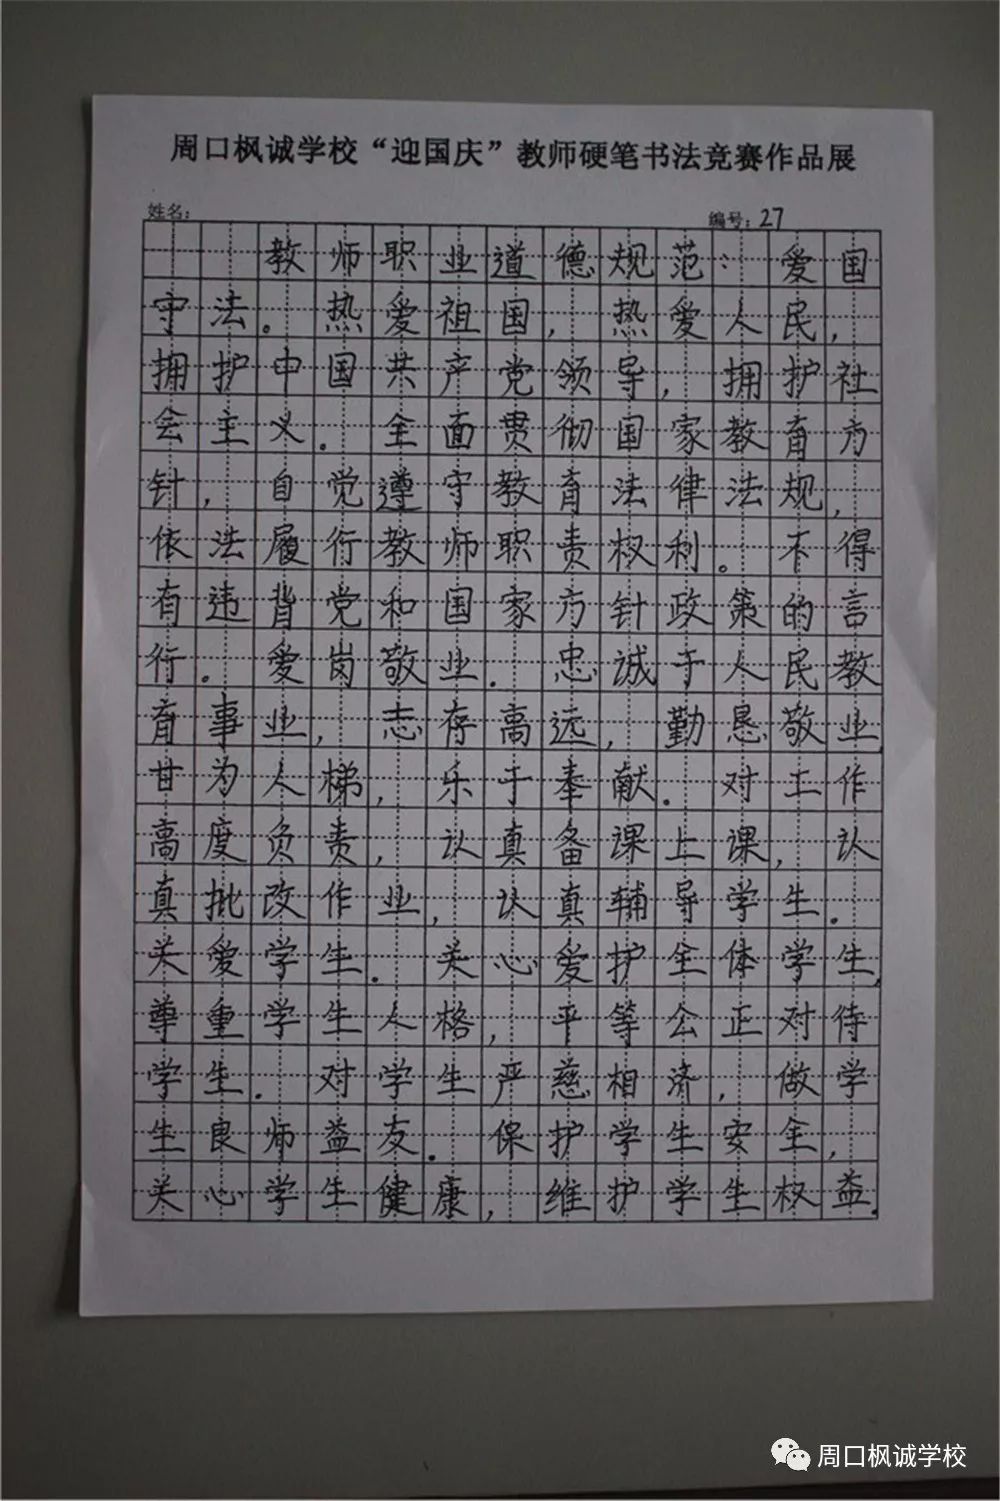 周口枫诚学校“迎国庆”教师硬笔书法竞赛作品展
姓名： 编号：27
教师职业道德规范：爱国
守法。热爱祖国，热爱人民，
拥护中国共产党领导，拥护社
会主义。全面贯彻国家教育方
针，自觉遵守教育法律法规，
依法履行教师职责权利。不得
有违背党和国家方针政策的言
行。爱岗敬业。忠诚于人民教
育事业，志存高远，勤恳敬业，
甘为人梯，乐于奉献。对工作
高度负责，认真备课上课，认
真批改作业，认真辅导学生。
关爱学生。关心爱护全体学生，
尊重学生人格，平等公正对待
学生。对学生严慈相济，做学
生良师益友。保护学生安全，
关心学生健康，维护学生权益。
周口枫诚学校